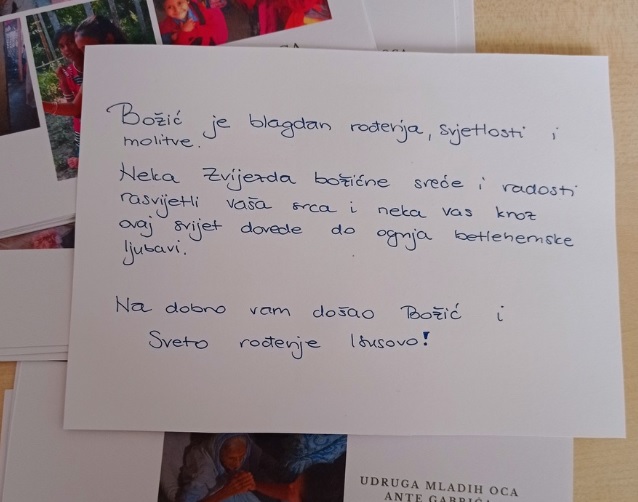 Božić je blagdan rođenja, svjetlosti i
molitve.
Neka Zvijezda božićne sreće i radosti
rasvijetli vaša srca i neka vas kroz
ovaj svijet dovede do ognja betlehemske
ljubavi.
Na dobro vam došao Božić i
Sveto rođenje Isusovo!
UDRUGA MLADIH OCA